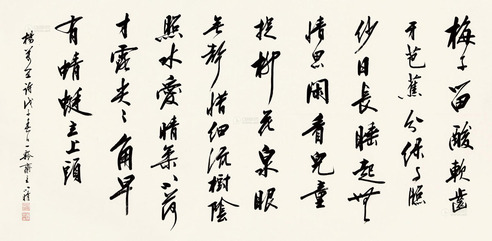 梅子留酸軟齒
牙芭蕉分綠与牕
紗日長睡起無
情思閑看兒童
捉柳花泉眼
無聲惜細流樹陰
照水愛晴柔小荷
才露尖尖角早
有蜻蜓立上頭
楊萬里詩戊子